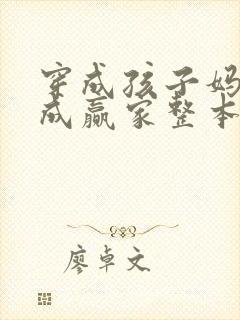 穿成孩子妈
成赢家整本
廖卓文